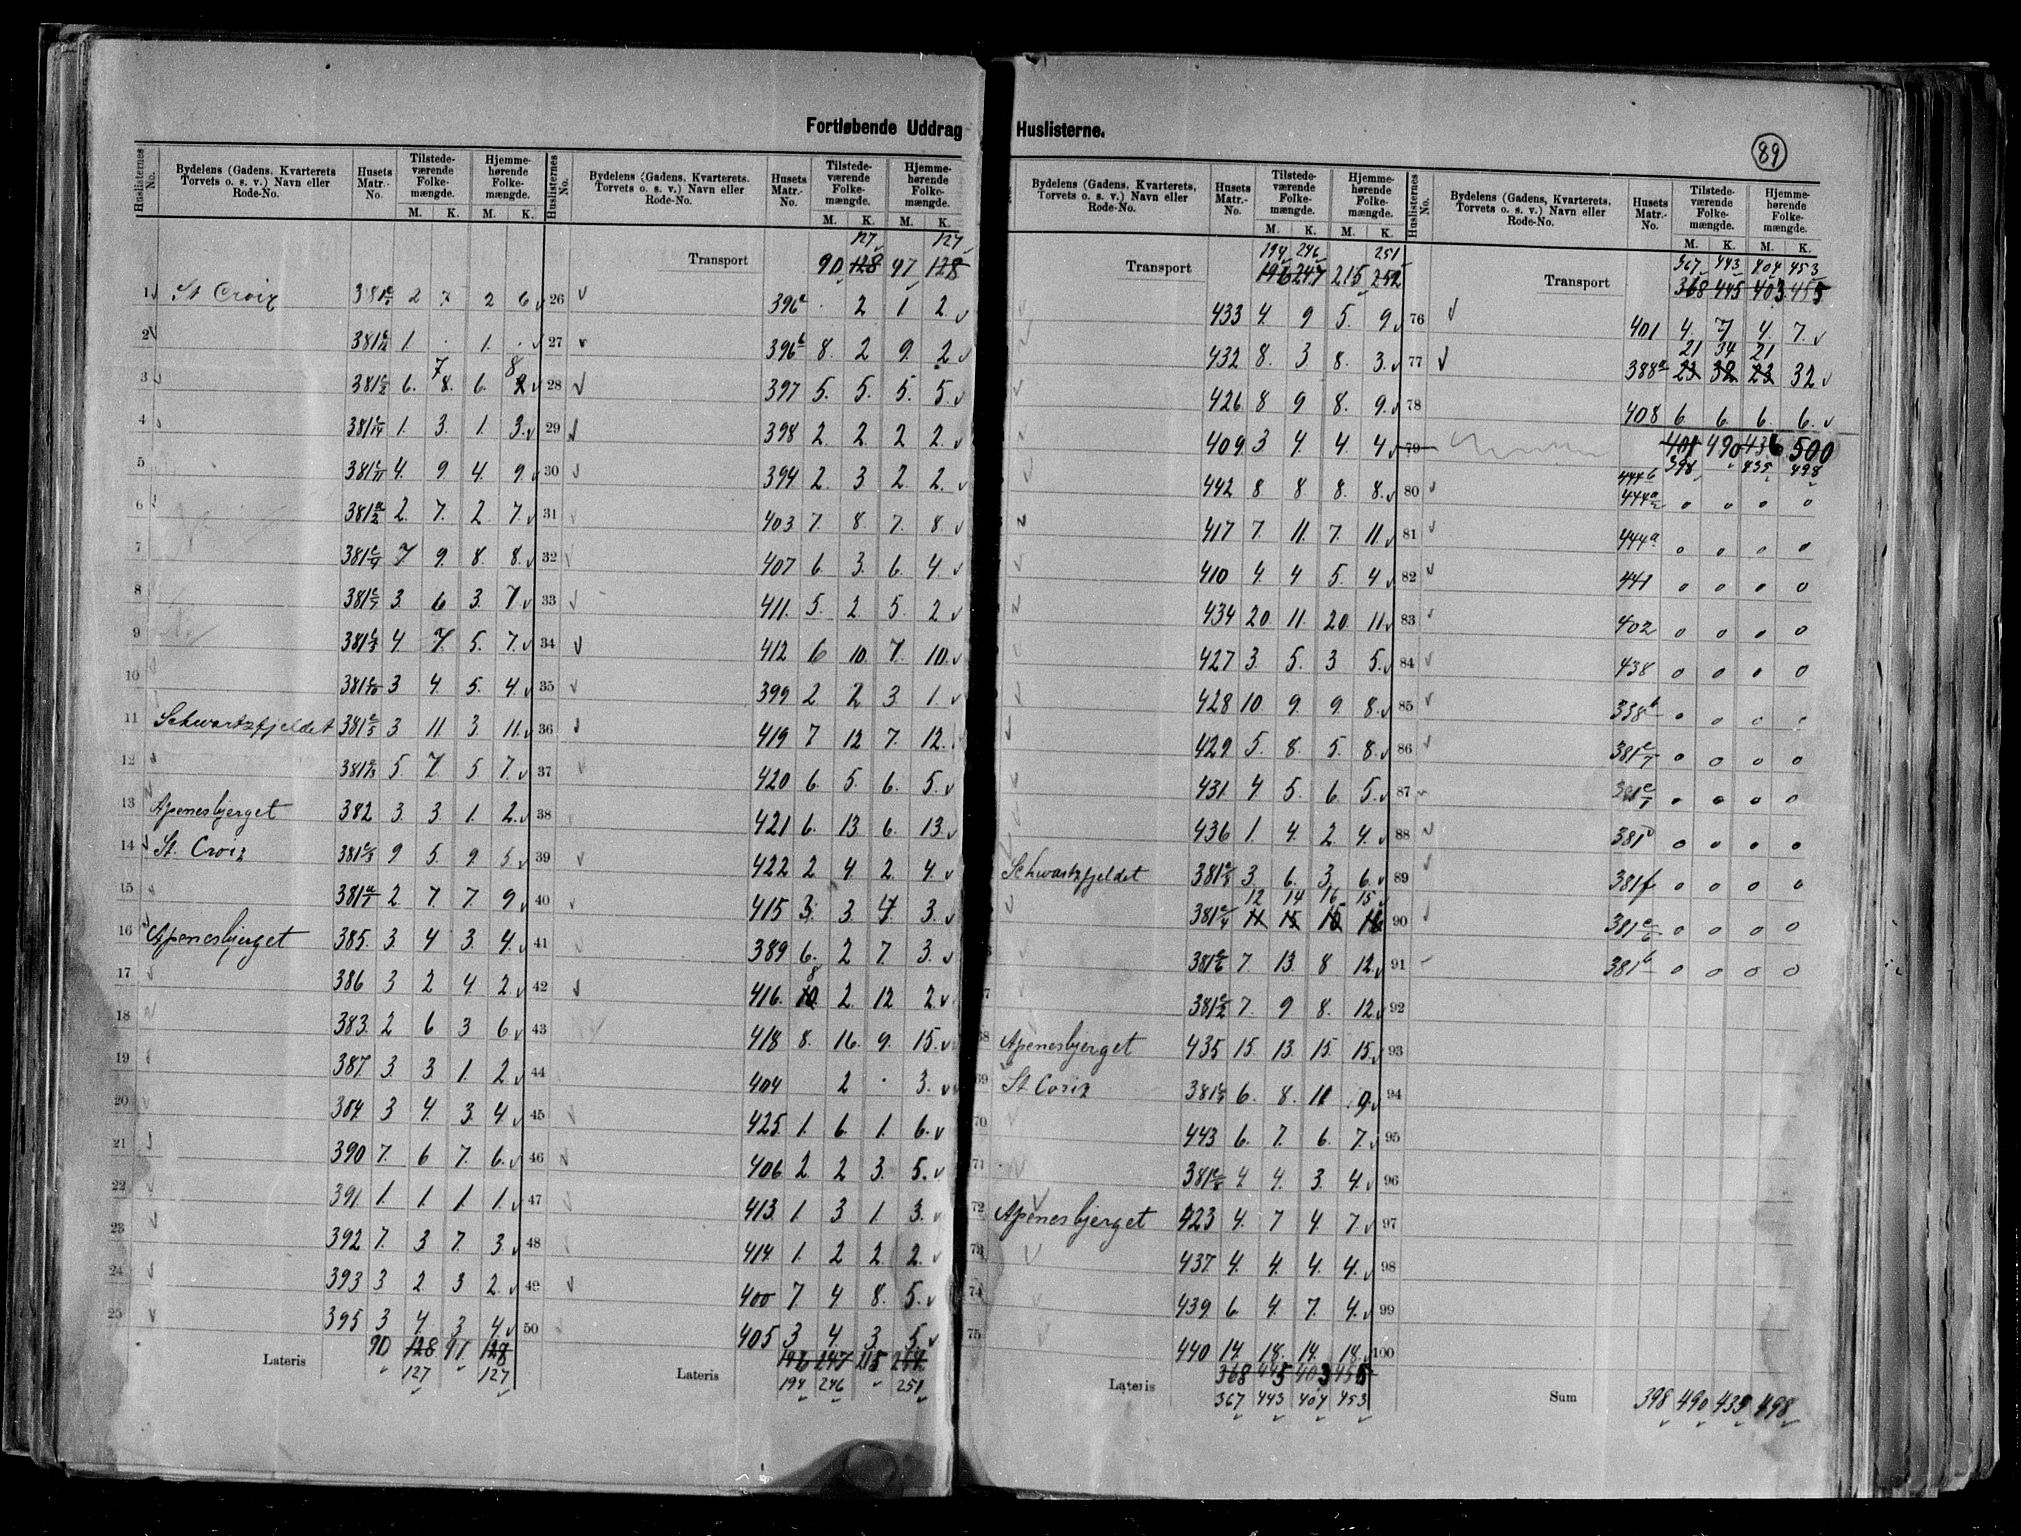 Fortløbende Uddrag Huslisterne.
89
Huslisternes No. Bydelens (Gadens, Kvarterets Torvets o. s. v.) Navn eller Rode-No. Husets Matr.-No. Tilstedeværende Folkemængde. M. K. Hjemmehørende Folkemængde. M. K.
1 St Croix 381 2 7 2 6
2 381 1. . 1. .
3 381 6. 7 8. 6 8
4 381 1. 3. 1. 3.
5 381 4. 9 4. 9
6 381 2. 7. 2. 7.
7 381 7 9. 8. 8.
8 381 3. 6 3. 7
9 381 4 7. 5. 7.
10 381 3 4. 5. 4.
11 Schwartzfjeldet 381 3 11 3. 11.
12 381 5 7. 5 7.
13 Apenesbjerget 382 3. 3 1. 2.
14 St. Croix 381 9 5. 9. 5.
15 381 2 7. 7. 9
16 Apenesbjerget 385. 3. 4 3. 4.
17 386 3 2 4 2
18 383. 2 6 3 6
19 387. 3. 3 1. 2
20 384. 3 4. 3. 4
21 390 7. 6 7. 6.
22 391 1. 1. 1. 1.
23 392 7. 3 7. 3.
24 393 3 2 3 2.
25 395 3 4 3 4
Lateris 90 128 97 128
127 127
Huslisternes No. Bydelens (Gadens, Kvarterets Torvets o. s. v.) Navn eller Rode-No. Husets Matr.-No. Tilstedeværende Folkemængde. M. K. Hjemmehørende Folkemængde. M. K.
127 127
Transport 90 128 97 128
26 396a . 2 1 2.
27 396b 8. 2 9. 2
28 397 5. 5. 5. 5.
29 398 2. 2. 2 2.
30 394 2. 3 2. 2.
31 403 7. 8. 7. 8
32 407 6. 3. 6. 4.
33 411. 5. 2 5. 2
34 412 6 10. 7. 10.
35 399 2 2 3 1.
36 419 7 12 7. 12.
37 420 6. 5. 6. 5.
38 421 6. 13. 6. 13.
39 422 2 4 2. 4.
40 415 3. 3. 4 3.
41 389 6. 2 7. 3.
42 416. 8 10 2. 12 2
43 418 8. 16. 9. 15.
44 404 2 . 3.
45 425. 1. 6. 1. 6.
46 406 2. 2 3. 5.
47 413. 1. 3 1. 3.
48 414. 1. 2 2. 2.
49 400 7. 4 8. 5.
50 405 3 4. 3. 5
Lateris 196 247 215 252
194 246 251
Bydelens (Gadens, Kvarterets, Torvets o. s. v.) Navn eller Rode-No. Husets Matr.-No. Tilstedeværende Folkemængde. M. K. Hjemmehørende Folkemængde. M. K.
194 246 251
Transport 196 247 215 252
433 4. 9 5. 9.
432 8. 3 8. 3.
426 8 9 8. 9.
409. 3 4. 4. 4
442 8 8 8. 8.
417 7. 11. 7. 11.
410 4. 4 5. 4
434 20 11. 20. 11
427 3. 5. 3 5.
428 10. 9. 9. 8.
429 5. 8. 5. 8.
431 4 5. 6. 5.
436 1. 4. 2 4.
Schwartzfjeldet 381 3. 6. 3. 6.
12 14 16 15
381 11 15 15 16
381 7. 13. 8 12.
381 7. 9 8. 12.
68 Apenesbjerget 435 15. 13. 15. 15.
69 St Corix 381 6. 8. 11 9.
70 443 6. 7. 6. 7.
71 381 4 4. 3. 4.
72 Apenesbjerget 423 4. 7 4. 7
73 437. 4. 4. 4. 4.
74 439. 6 4. 7. 4.
75 440 14. 18. 14. 18.
Lateris 368 445 403 455
367 443 404 453
Huslisternes No. Bydelens (Gadens, Kvarterets, Torvets o. s. v.) Navn eller Rode-No. Husets Matr.-No. Tilstedeværende Folkemængde. M. K. Hjemmehørende Folkemængde. M. K.
367 443 404 453
Transport 368 445 403 455
76 401 4. 7 4. 7.
21 34 21
77 388a 23 32 23 32
78 408 6 6. 6. 6.
79 401 490 436 500
398 435 498
444b
80 444 0 0 0 0
81 444a 0 0 0 0
82 441 0 0 0 0
83 402 0 0 0 0
84 438 0 0 0 0
85 338b 0 0 0 0
86 381 0 0 0 0
87 381 0 0 0 0
88 381 0 0 0 0
89 381f 0 0 0 0
90 381 0 0 0 0
91 381b 0 0 0 0
92
93
94
95
96
97
98
99
100
Sum 398 490 435 498